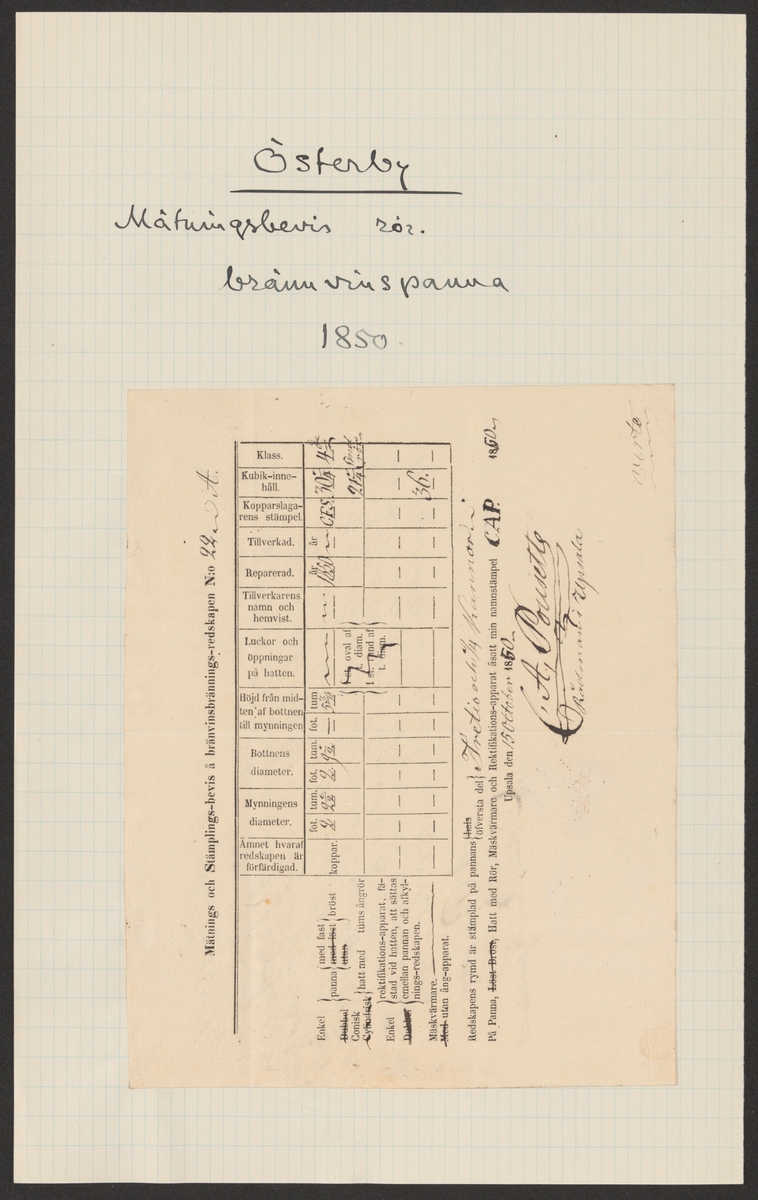 Österby
Mätningsbevis rör.
brännvinspanna
1850
Mätnings och Stämplings-bevis å bränvinsbrännings-redskapen N:o 22 A.
Ämnet hvaraf redskapen är förfärdigad.
Mynningens diameter.
fot. tum.
Bottnens diameter.
fot. tum.
Höjd från midten af bottnen till mynningen
fot. tum
Luckor och öppningar på hatten.
Tillverkarens namn och hemvist.
Reparerad.
Tillverkad.
Kopparslagarens stämpel.
Kubik-innehåll.
Klass.
Enkel
Dubbel
panna
med fast
med löst
utan
bröst
koppar.
år 1850
år
CFS.
Conisk
Cylindrisk
hatt med tums ångrör
1 st. oval af t. diam.
1 st. rund af t. diam.
Enkel
Dubbel
rektifikations-apparat, fästad vid hatten, att sättas emellan pannan och afkylnings-redskapen.
Mäskvärmare.
36.
Med utan ång-apparat.
Redskapens rymd är stämplad på pannans
hals
öfversta del
Tretio och kannor
På Panna, Löst Bröst, Hatt med Rör, Mäskvärmare och Rektifikations-apparat åsatt min namnstämpel CAP. 1850
Upsala den 15 October 1850
C A, Pousette
Rådman i Upsala